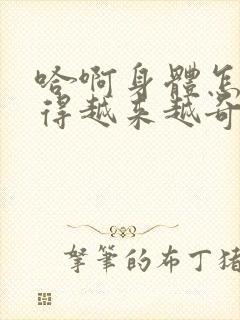 哈啊身體怎
得越来越奇
拏筆的布丁猪